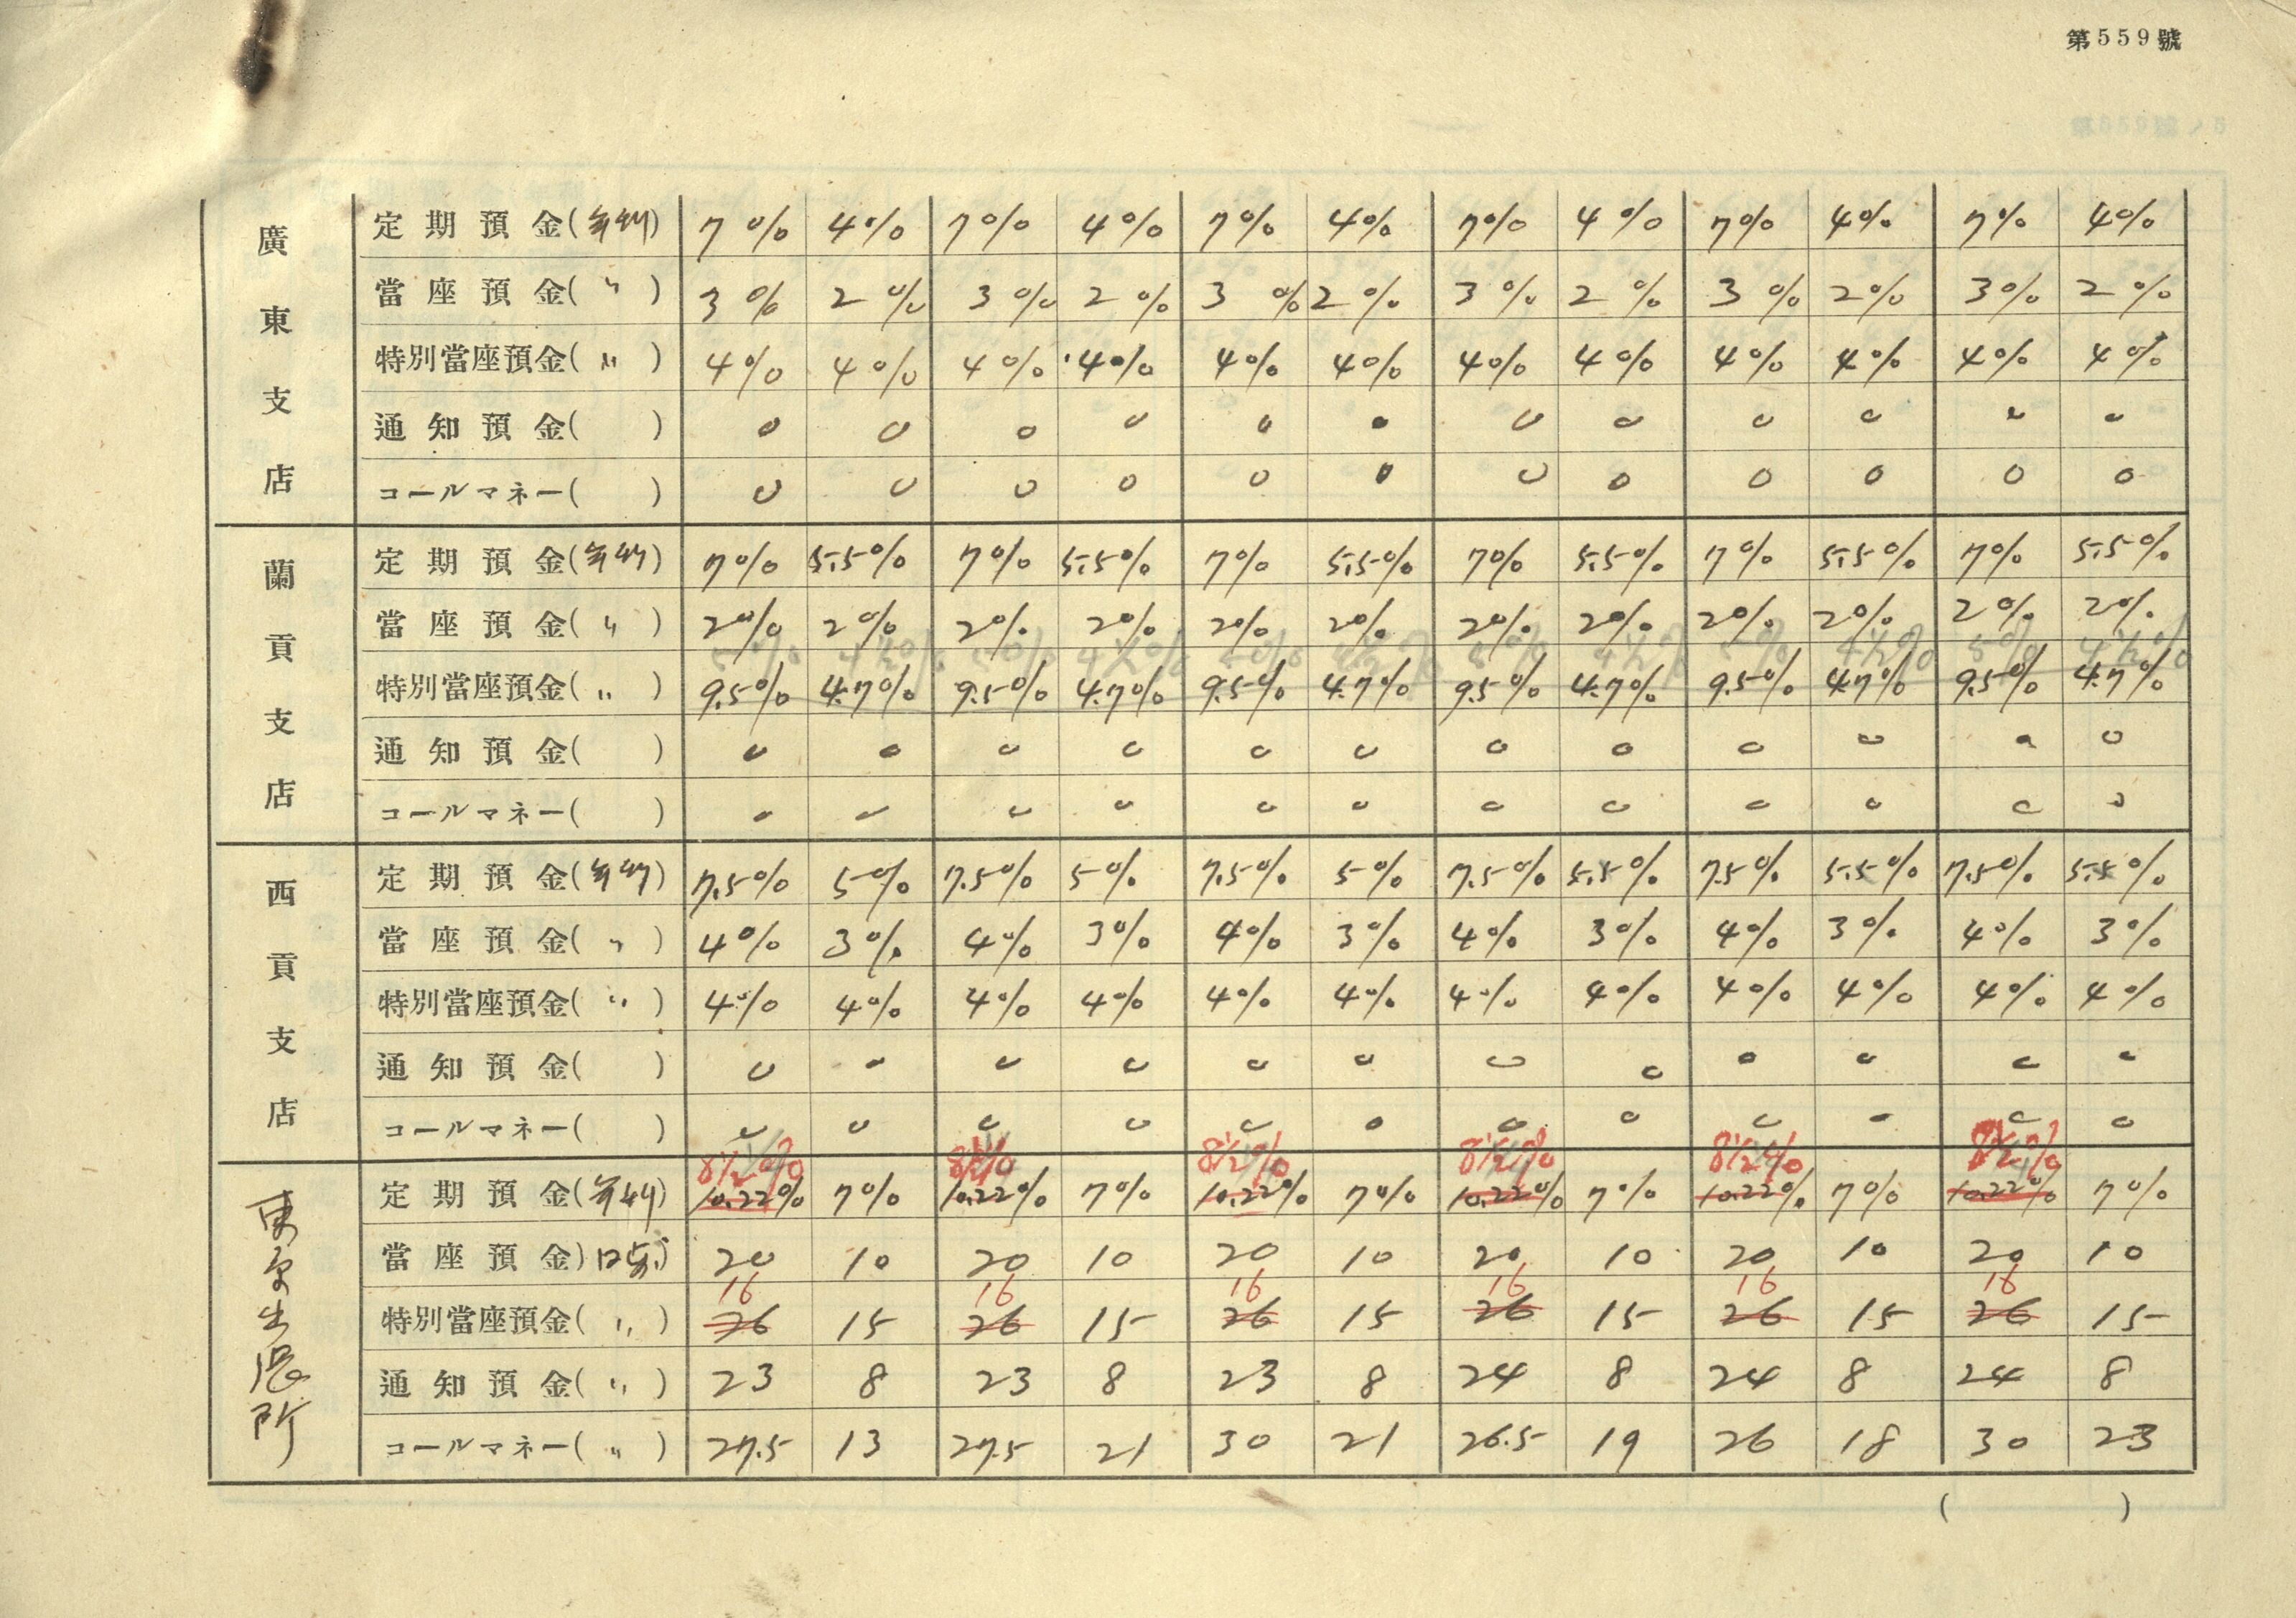 第559號
廣東支店
定期預金(年利) 7% 4% 7% 4% 7% 4% 7% 4% 7% 4% 7% 4%
當座預金(〃) 3% 2% 3% 2% 3% 2% 3% 2% 3% 2% 3% 2%
特別當座預金(〃) 4% 4% 4% 4% 4% 4% 4% 4% 4% 4% 4% 4%
通知預金( ) 0 0 0 0 0 0 0 0 0 0 0 0
コールマネー( ) 0 0 0 0 0 0 0 0 0 0 0 0
蘭貢支店
定期預金(年利) 7% 5.5% 7% 5.5% 7% 5.5% 7% 5.5% 7% 5.5% 7% 5.5%
當座預金(〃) 2% 2% 2% 2% 2% 2% 2% 2% 2% 2% 2% 2%
5% 4½% 5% 4½% 5% 4½% 5% 4½% 5% 4½% 5% 4½%
特別當座預金(〃) 9.5% 4.7% 9.5% 4.7% 9.5% 4.7% 9.5% 4.7% 9.5% 4.7% 9.5% 4.7%
通知預金( ) 0 0 0 0 0 0 0 0 0 0 0 0
コールマネー( ) 0 0 0 0 0 0 0 0 0 0 0 0
西貢支店
定期預金(年利) 7.5% 5% 7.5% 5% 7.5% 5% 7.5% 5.5% 7.5% 5.5% 7.5% 5.5%
當座預金(〃) 4% 3% 4% 3% 4% 3% 4% 3% 4% 3% 4% 3%
特別當座預金(〃) 4% 4% 4% 4% 4% 4% 4% 4% 4% 4% 4% 4%
通知預金( ) 0 0 0 0 0 0 0 0 0 0 0 0
コールマネー( ) 0 0 0 0 0 0 0 0 0 0 0 0
東京出張所
8½% 8½% 8½% 8½% 8½% 8½%
定期預金(年利) 10.22% 7% 10.22% 7% 10.22% 7% 10.22% 7% 10.22% 7% 10.22% 7%
當座預金)日歩) 20 10 20 10 20 10 20 10 20 10 20 10
16 16 16 16 16 16
特別當座預金(〃) 26 15 26 15 26 15 26 15 26 15 26 15
通知預金(〃) 23 8 23 8 23 8 24 8 24 8 24 8
コールマネー(〃) 27.5 13 27.5 21 30 21 26.5 19 26 18 30 23
( )